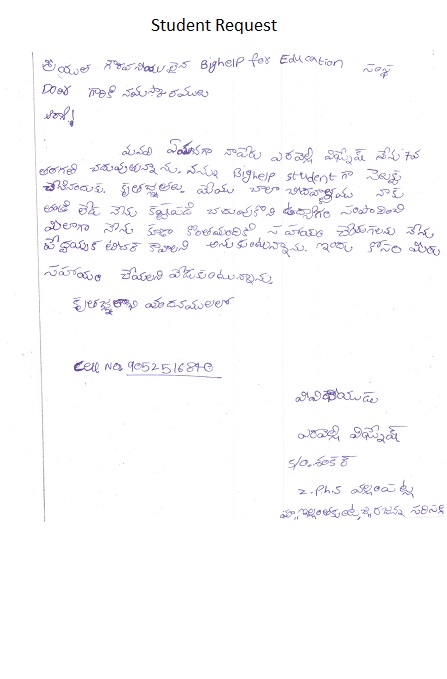 Student Request
శ్రీయుత గౌరవనీయులైన Bighelp for Education సంస్థ
Door గారికి నమస్కారములు
సార్!
మనవి ఏమనగా నాపేరు ఎరవెల్లి విఘ్నేష్ నేను 7వ
తరగతి చదువుతున్నాను. నన్ను Bighelp student గా సెలెక్టు
చేసినారు. కృతజ్ఞతలు. మేము చాలా బీదవాళ్ళము నాకు
తండ్రి లేడు నేను కష్టపడి చదువుకొని ఉద్యోగం సంపాదించి
మీలాగా నేను కూడా కొంతమందికి సహాయం చేయగలను నేను
కావాలని అనుకుంటున్నాను. ఇందు కోసం మీరు
సహాయం చేయలని వేడుకుంటున్నాను
కృతజ్ఞతాభి వందనములతో
Cell No. 9052516840
ఎరవెల్లి విఘ్నేష్
S/o. శంకర్
Z.P.H.S వల్లంపట్ల